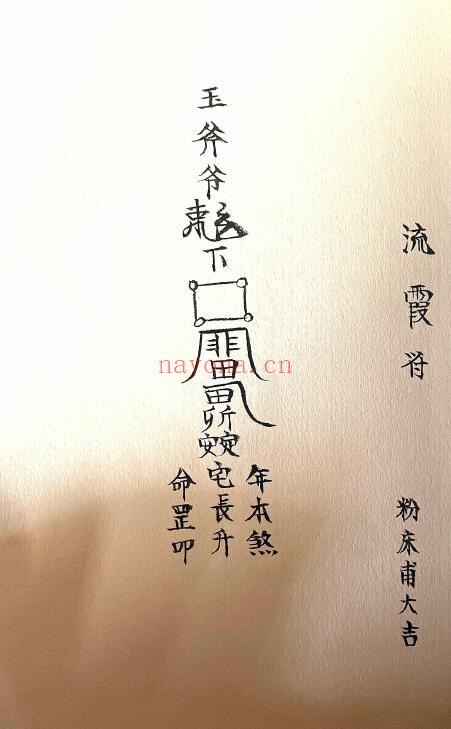 流霞符
粉床甫大吉
年本煞
玉斧爷下宅長升
命罡叩
nayona.cn